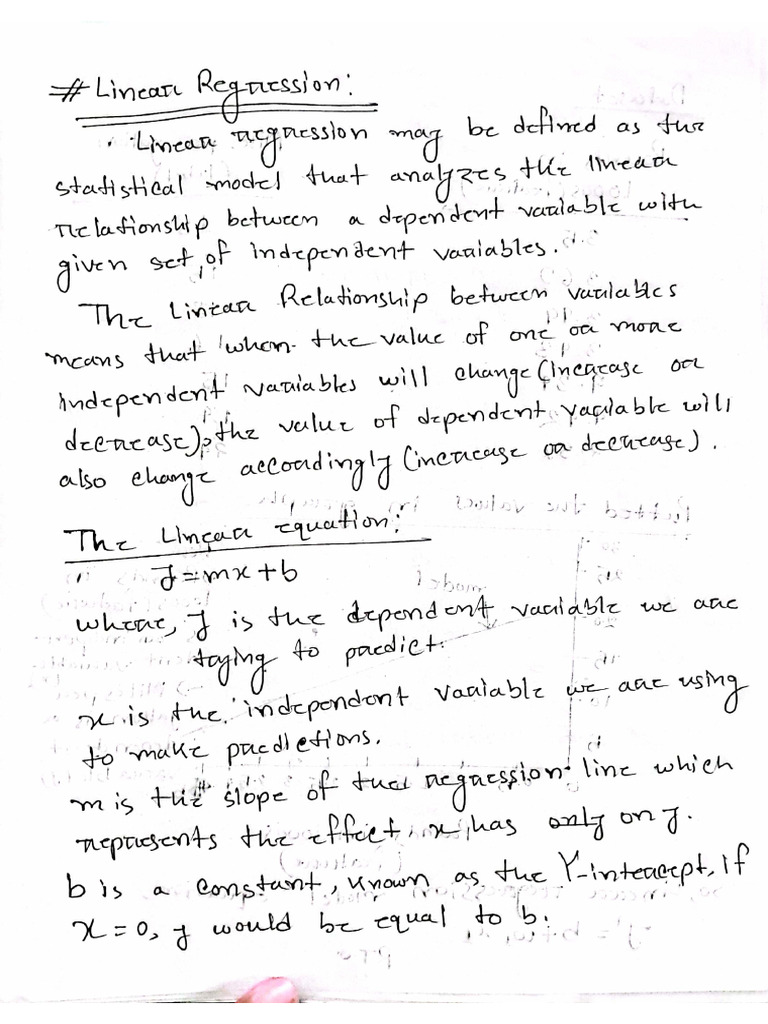 # Linear Regression:
Linear regression may be defined as the
statistical model that analyzes the linear
relationship between a dependent variable with
given set of independent variables.
The Linear Relationship between variables
means that when the value of one or more
independent variables will change (increase or
decrease), the value of dependent variable will
also change accordingly (increase or decrease).
The Linear equation:
y = mx + b
where, y is the dependent variable we are
trying to predict.
x is the independent variable we are using
to make predictions.
m is the slope of the regression line which
represents the effect x has only on y.
b is a constant, known as the Y-intercept, if
x = 0, y would be equal to b.